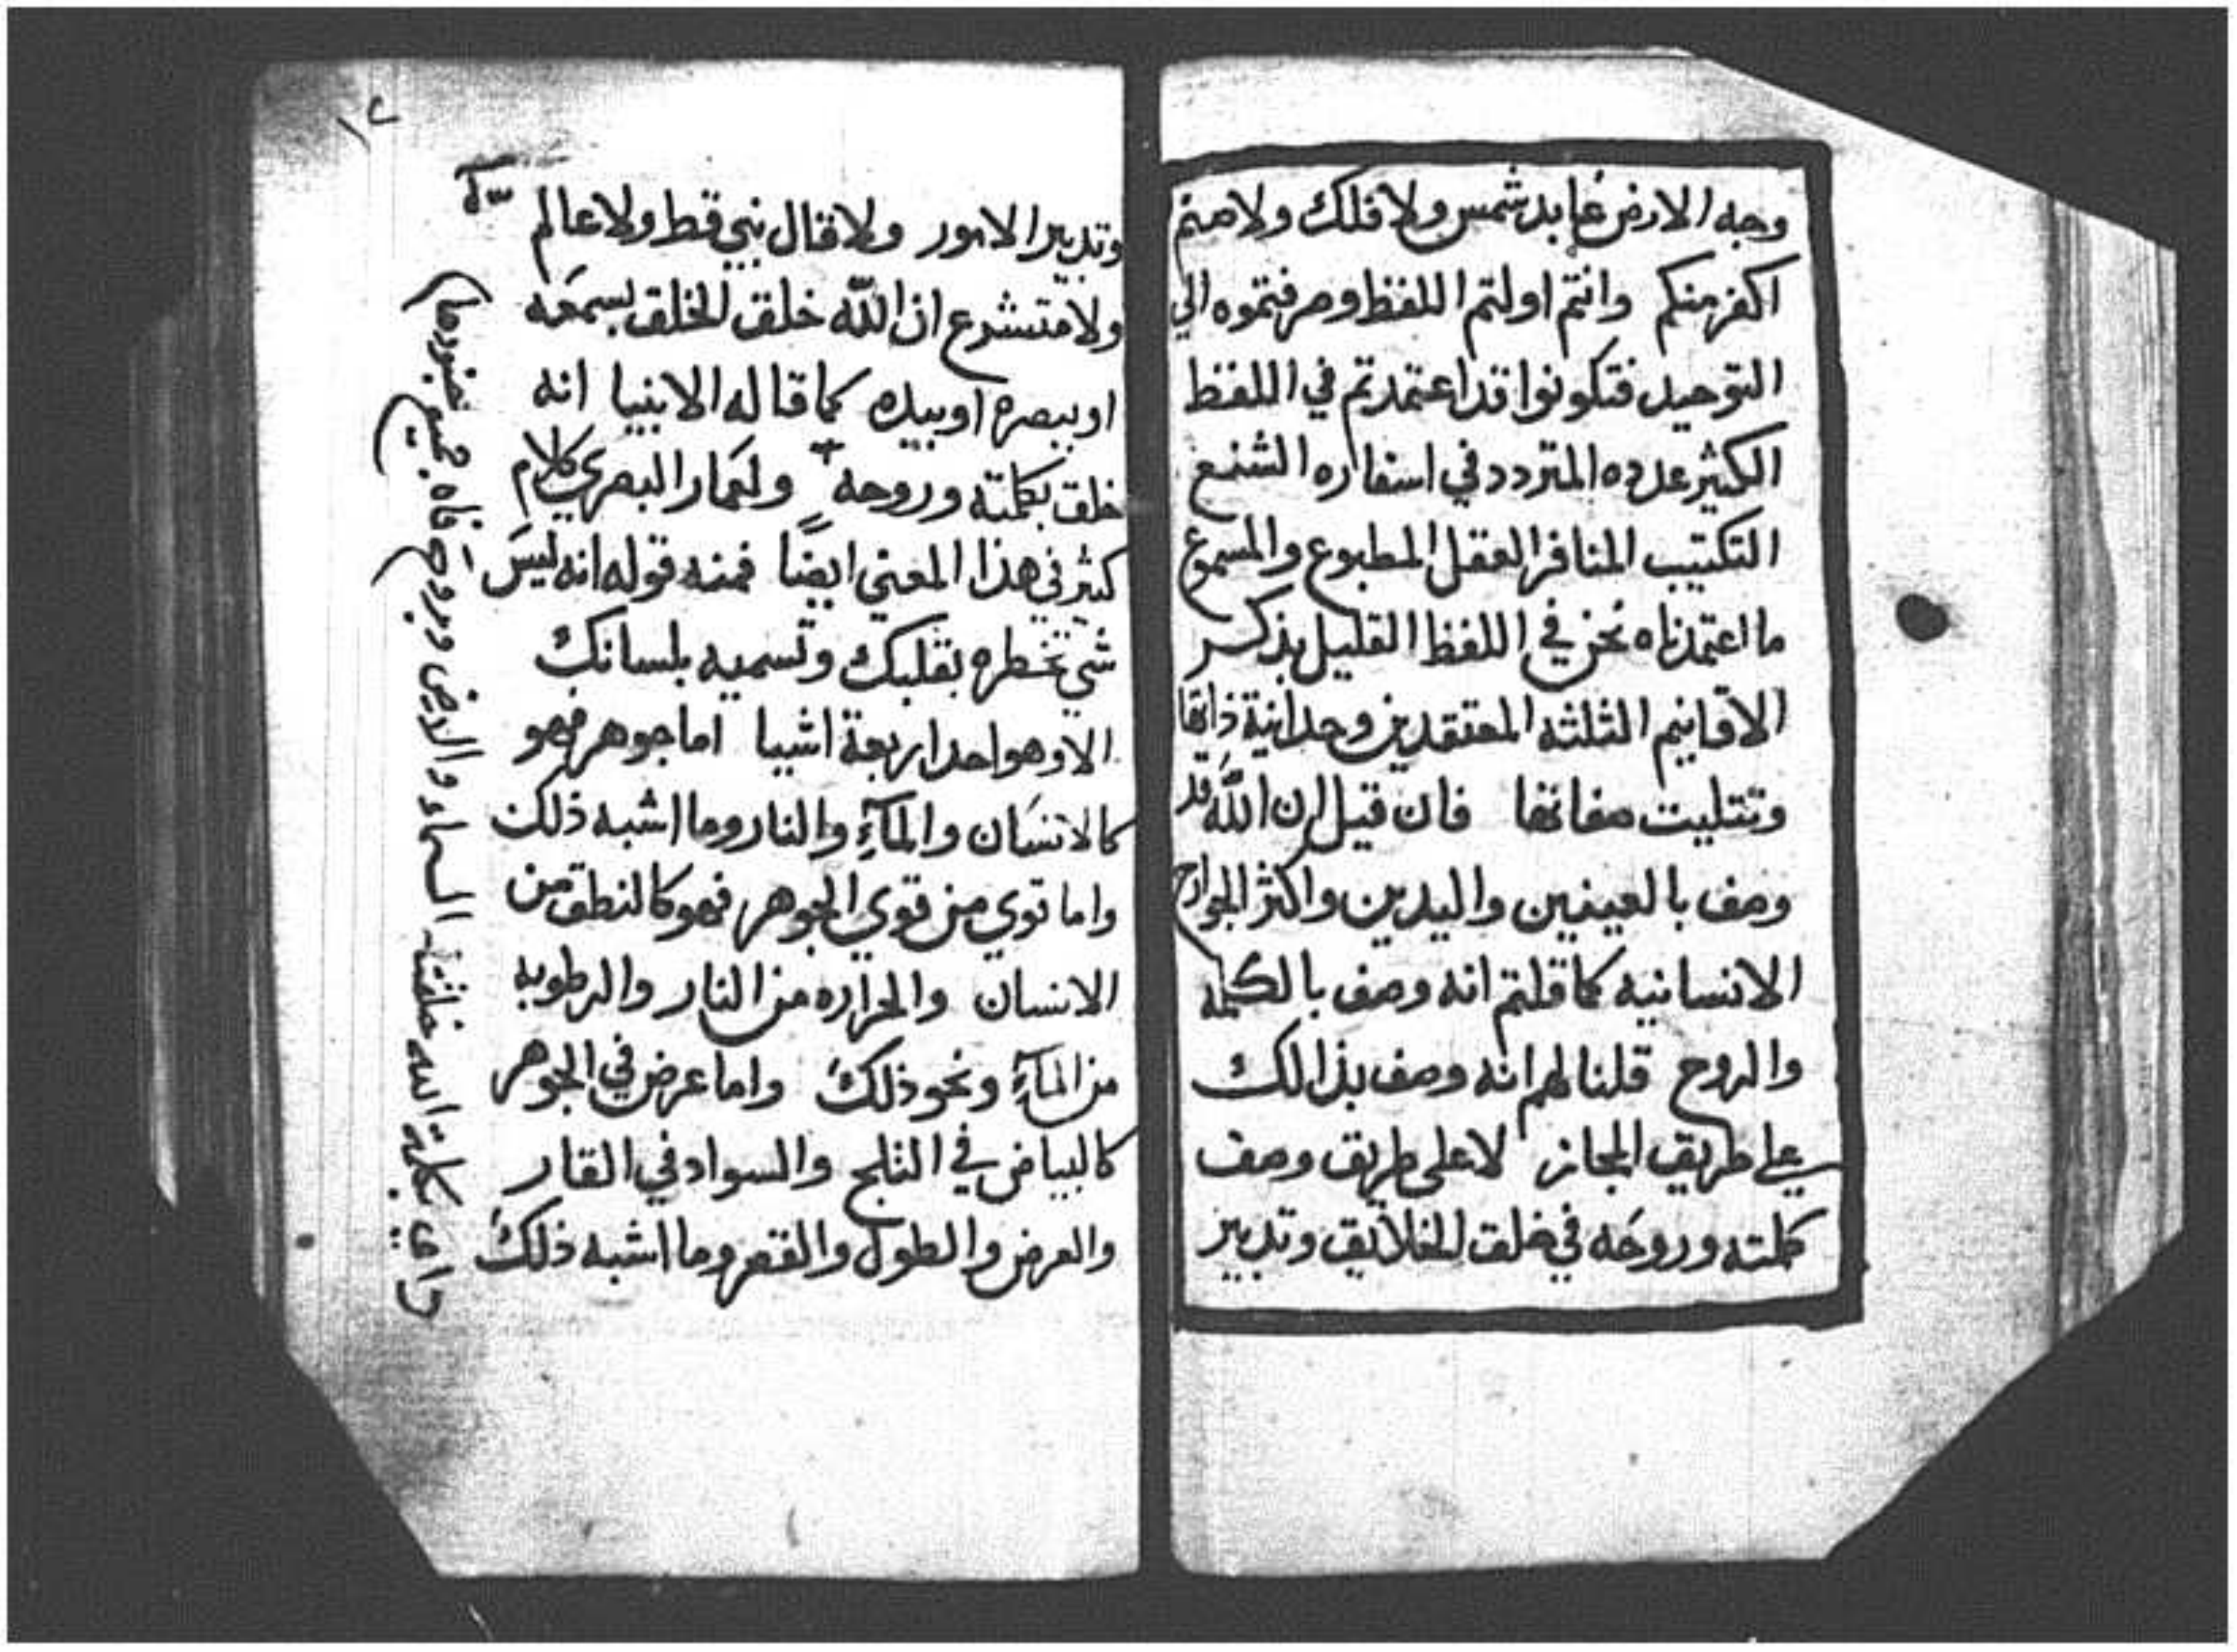 وجه الارض عابد شمس ولا فلك ولا صنم
اكفر منكم وانتم اولتم اللفظ وصرفتموه الي
التوحيد فتكونوا قد اعتمدتم في اللفظ
الكثير عدده المتردد في اسفاره الشنع
التكتيب المنافر العقل المطبوع والمسموع
ما اعتمدناه نحن في اللفظ القليل بذكر
الاقانيم الثلثه المعتقدين وحدانية ذاتها
وتتليت صفاتها فان قيل ان الله قد
وصف بالعينين واليدين واكثر الجوارح
الانسانيه كما قلتم انه وصف بالكلمه
والروح قلنا لهم انه وصف بذالك
علي طريق المجاز لا على طريق وصف
كلمته وروحه في خلق الخلايق وتدبير
١٢
وتدبير الامور ولا قال نبي قط ولا عالم
ولا متشرع ان الله خلق الخلق بسمعه
او ببصره او بيده كما قاله الانبيا انه
خلق بكلمته وروحه ولعمار البصري كلام
كثير في هذا المعني ايضًا فمنه قوله انه ليس
شي تخطره بقلبك وتسميه بلسانك
الا وهو احد اربعة اشيا اما جوهر فهو
كالانسان والمآء والنار وما اشبه ذلك
واما قوي من قوي الجوهر فهو كالنطق من
الانسان والحراره من النار والرطوبه
من المآء ونحو ذلك واما عرض في الجوهر
كالبياض في الثلج والسواد في القار
والعرض والطول والقصر وما اشبه ذلك
داود بكلمة الله خلقت السماء والارض وبروح فاه جميع جنودها